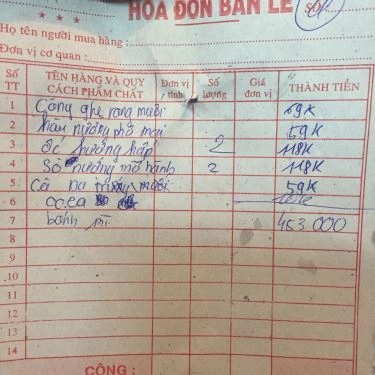 HÓA ĐƠN BÁN LẺ
SỐ:
Họ tên người mua hàng :
Đơn vị cơ quan :
Số TT TÊN HÀNG VÀ QUY CÁCH PHẨM CHẤT Đơn vị tính Số lượng Giá đơn vị THÀNH TIỀN
1 Càng ghẹ rang muối 69K
2 hàu nướng phô mai 59K
3 ốc hương hấp 2 118K
4 Sò nướng mỡ hành 2 118K
5 muối 59K
6
7 bánh mì 453.000
8
9
10
11
12
13
14
CỘNG :